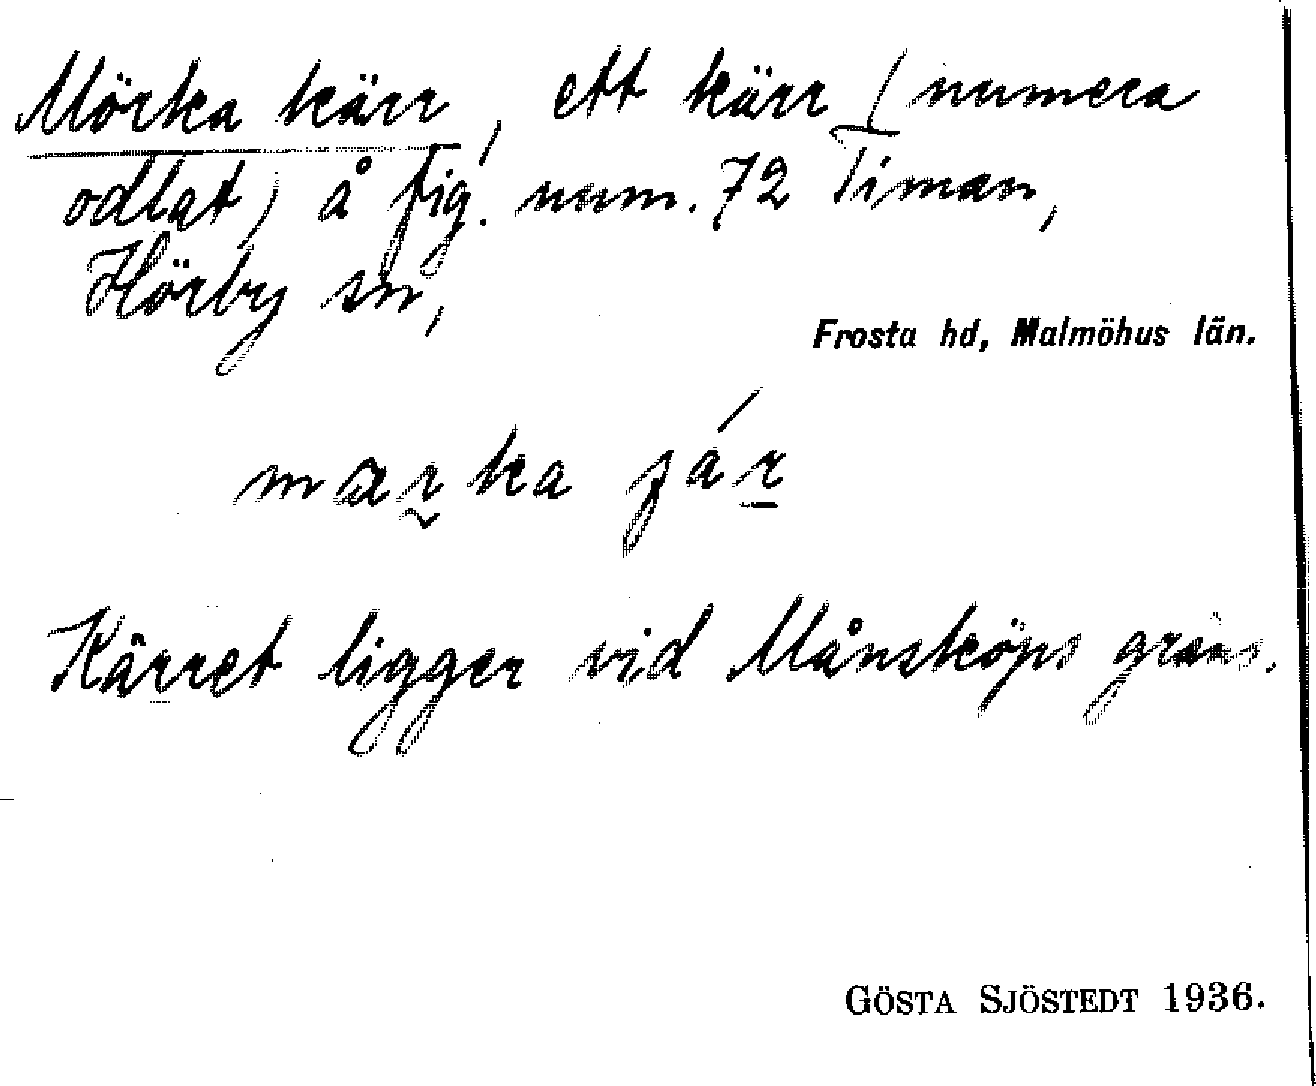 Mörka kärr, ett kärr (numera
odlat) å fig. num. 72 Timan,
Hörby sn,
Frosta hd, Malmöhus län.
marka jár
Kärret ligger vid Månsköps gräns.
GÖSTA SJÖSTEDT 1936.